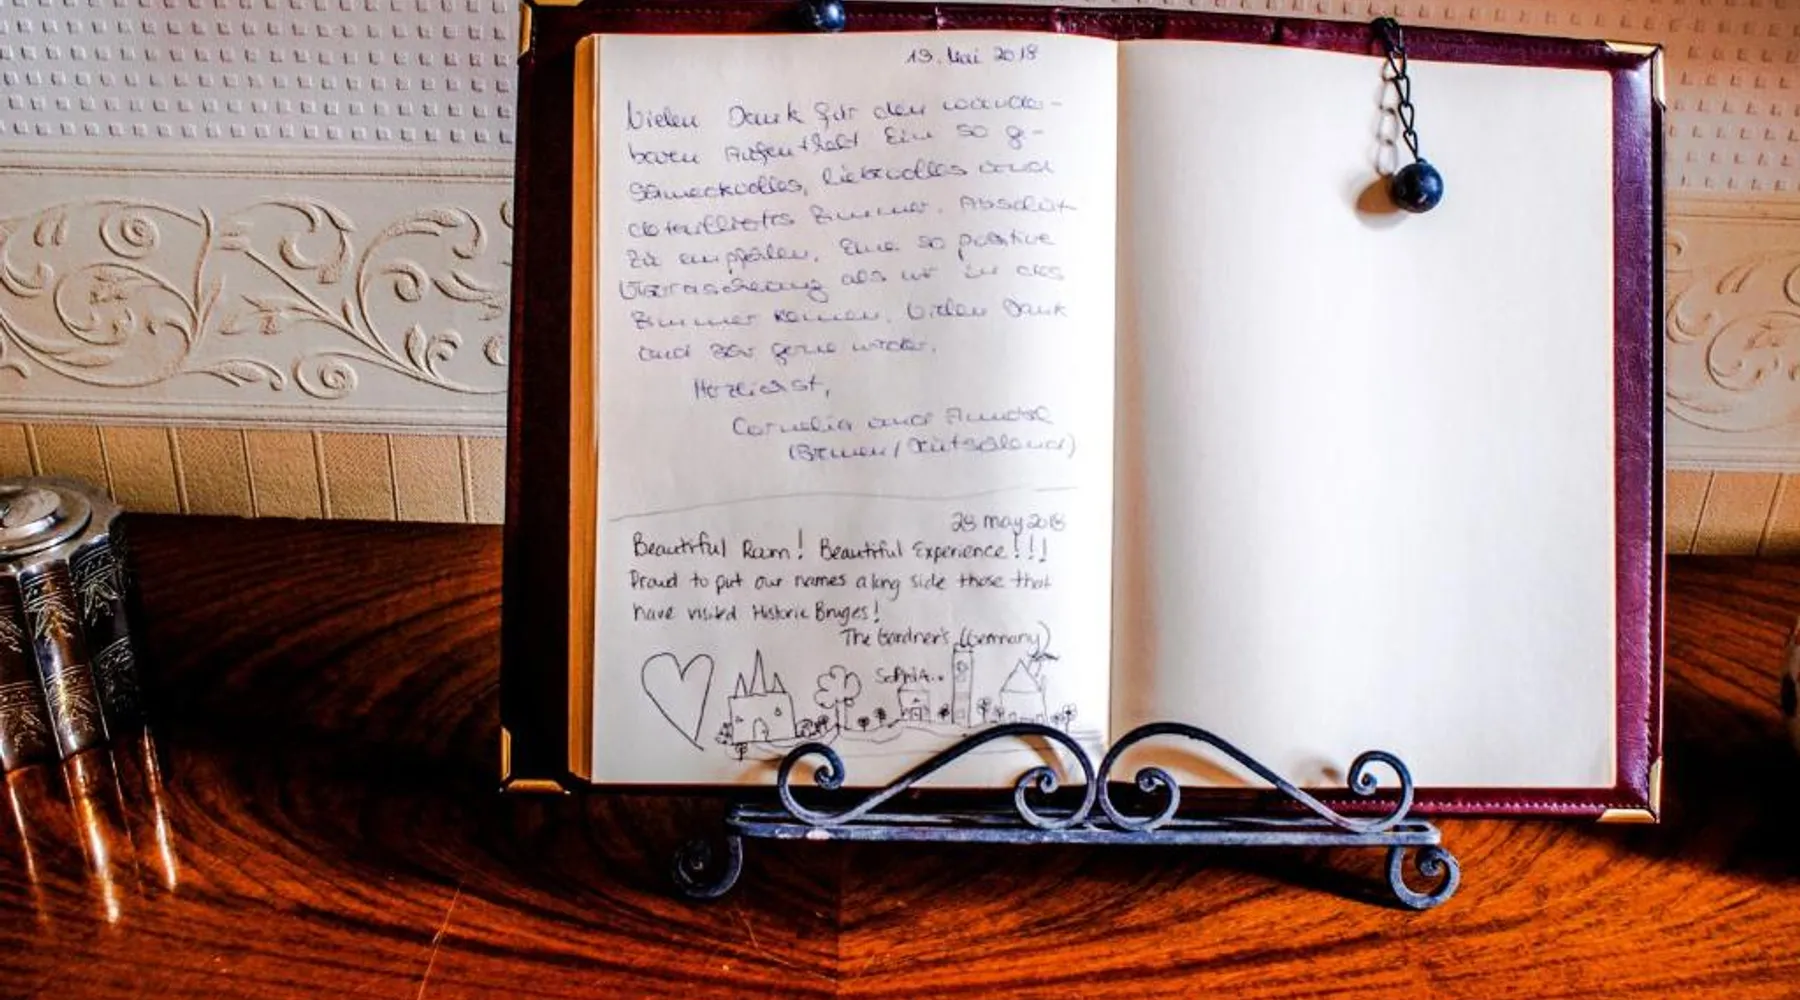 19. Mai 2018
Vielen Dank für den wunder-
baren Aufenthalt. Ein so ge-
schmackvolles, liebevolles und
detailliertes Zimmer. Absolut
zu empfehlen. Eine so positive
Überraschung als wir in das
Zimmer kamen. Vielen Dank
und sehr gerne wieder.
Herzlichst,
Cornelia und
(Bremen / Deutschland)
28 may 2018
Beautiful Room! Beautiful Experience!!!
Proud to put our names along side those that
have visited Historic Bruges!
The Gardner's (Germany)